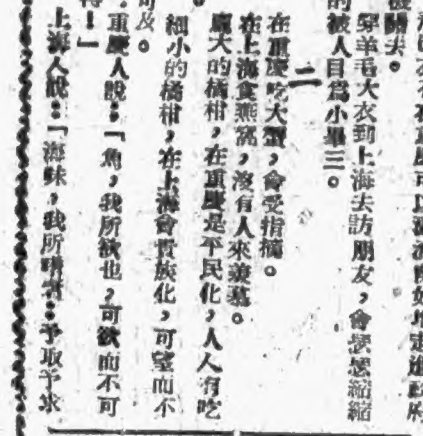 機關去。
穿羊毛大衣到上海去訪朋友，會慫慫縮縮
的被人目爲小畢三。
二
在重慶吃大蟹，會受指摘。
在上海食燕窩，沒有人來羨慕。
龐大的橘柑，在重慶是平民化，人人有吃
。
細小的橘柑，在上海會貴族化，可望而不
可及。
重慶人說：「魚，我所欲也，可欲而不可
得！」
上海人說：「海味，我所嗜者：予取予求